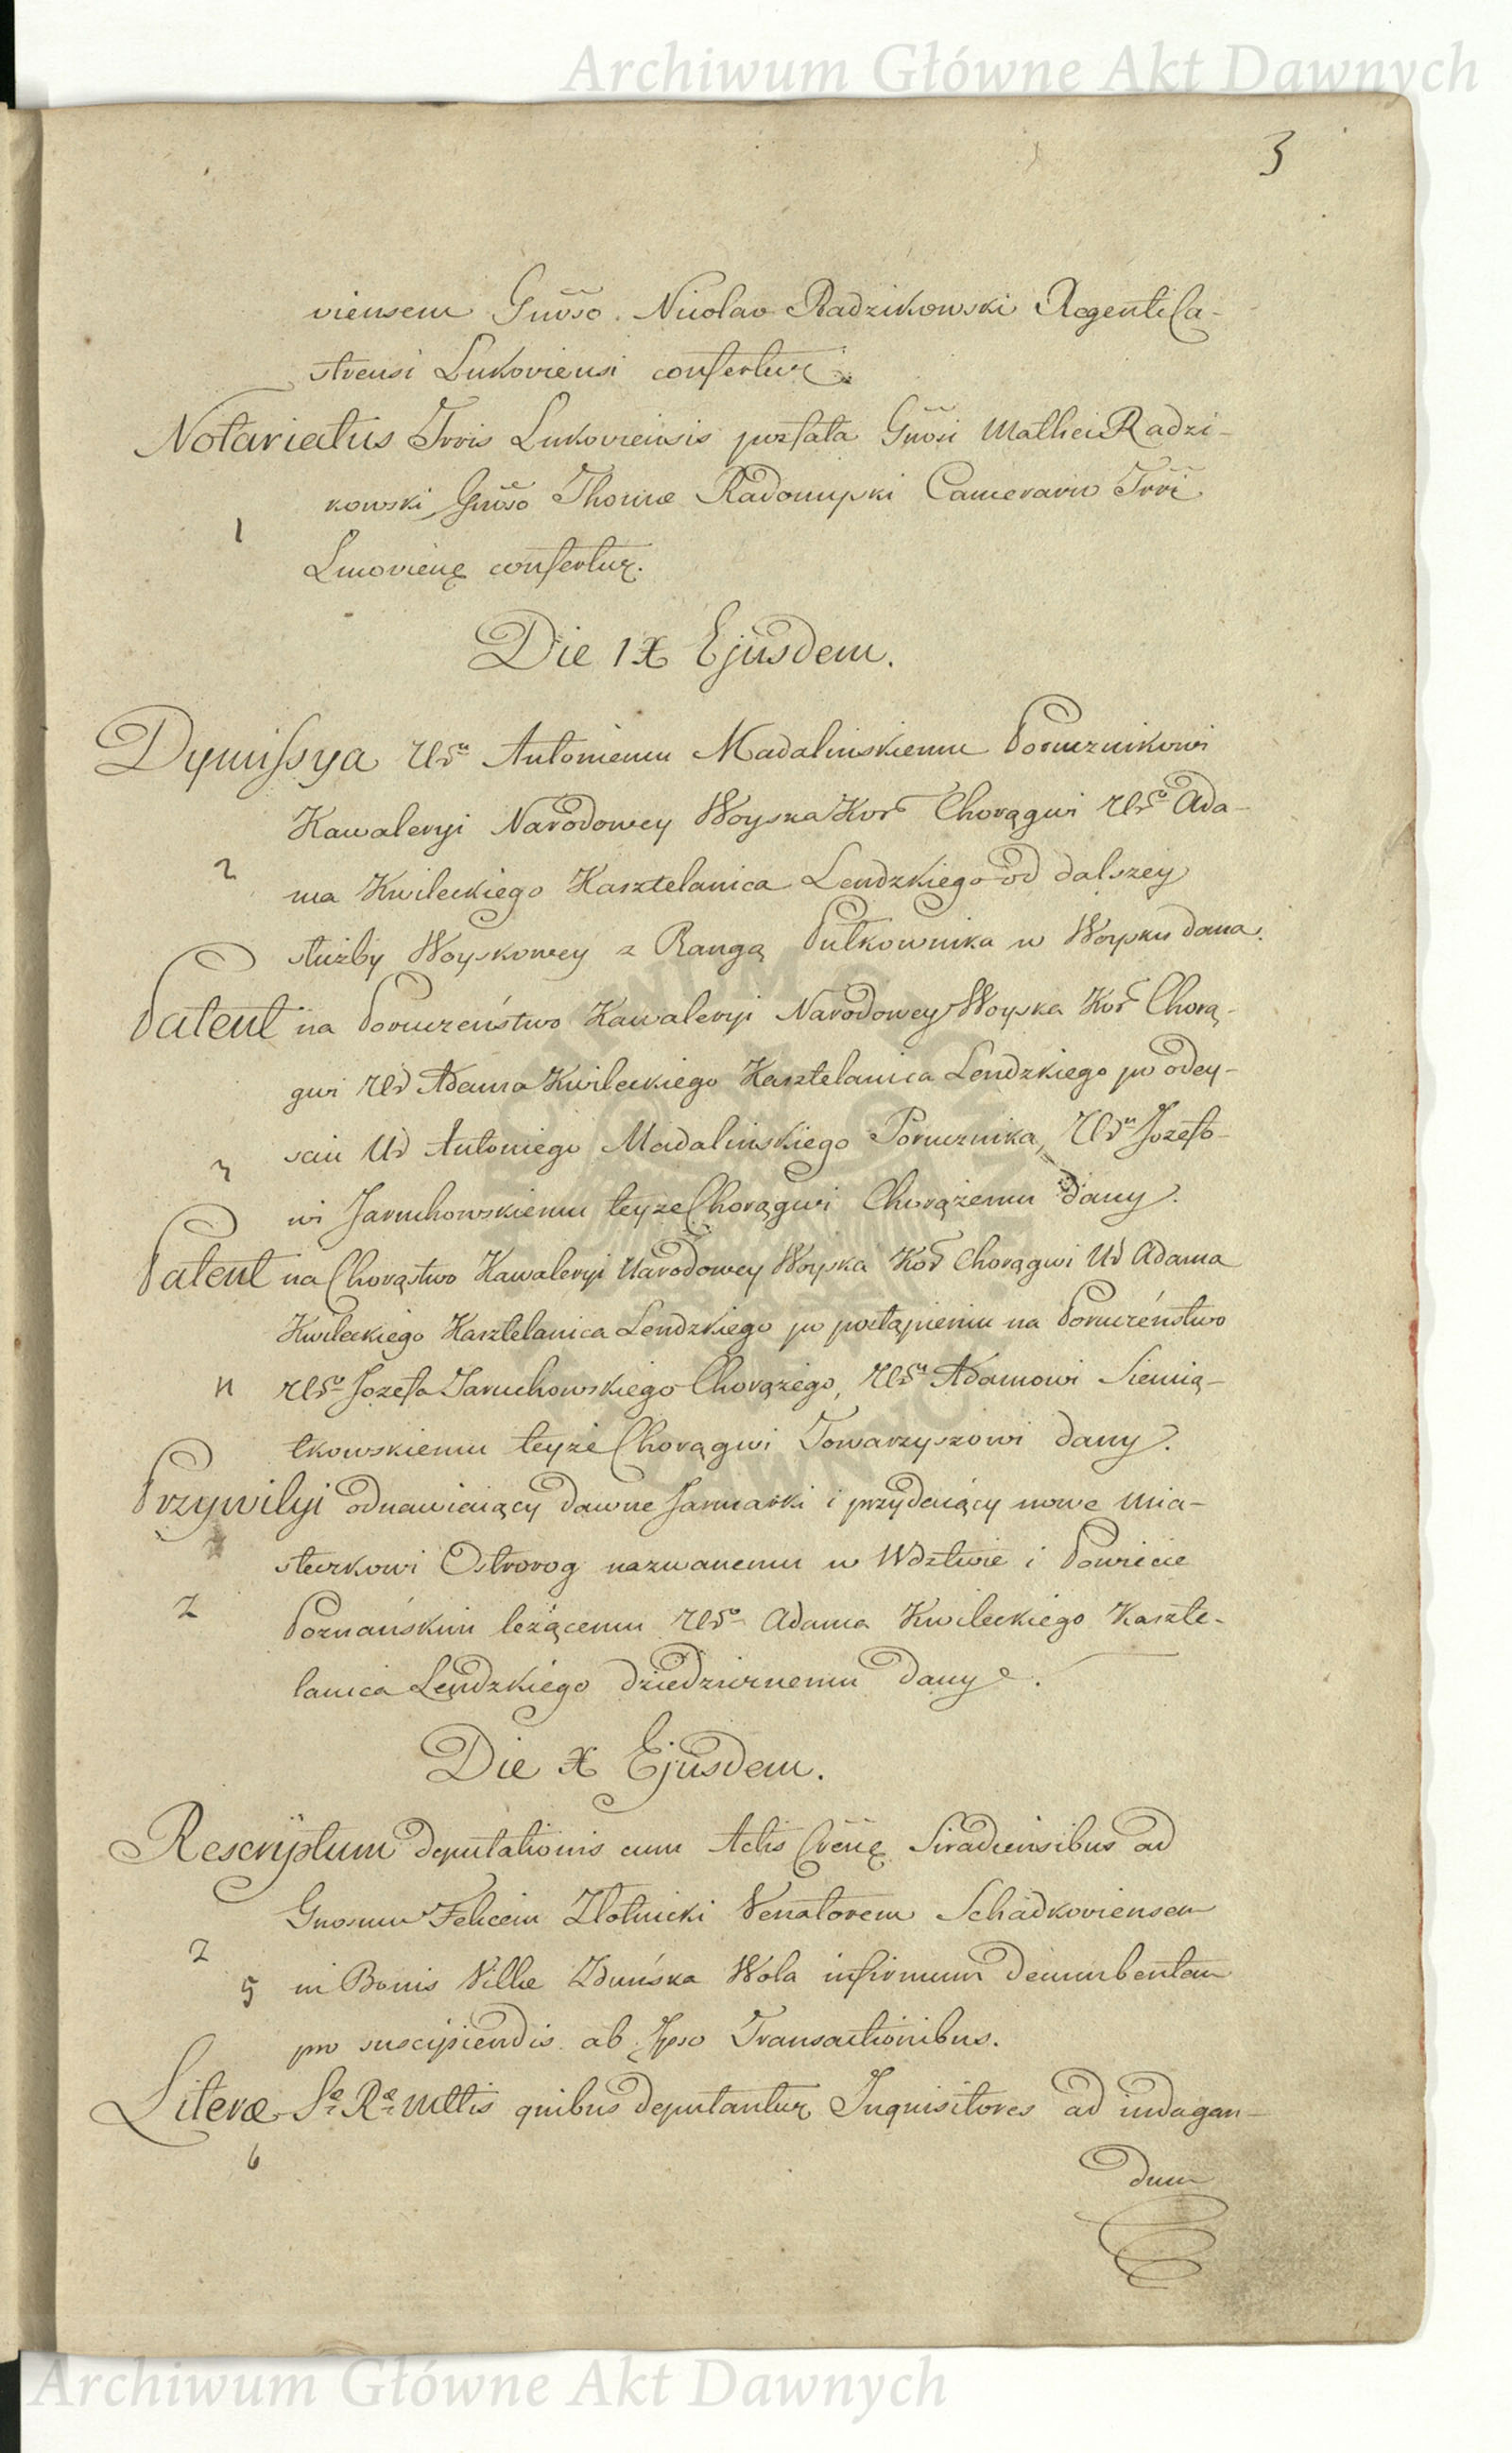 Archiwum Główne Akt Dawnych
3
viensem Gnoso Nicolao Radzikowski Regenti Ca-
strensi Lukoviensi confertur.
Notariatus Trris Lukoviensis post fata Gnosi Mathei Radzi-
kowski, Gnoso Thomæ Radomyski Camerario Trri
1
confertur.
Die IX Ejusdem.
Dymissya Urdu Antoniemu Madalinskiemu Porucznikowi
Kawaleryi Narodowey Woyska Kor Chorągwi Urdo Ada-
2
ma Kwileckiego Kasztelanica Lendzkiego od dalszey
służby Woyskowey z Rangą Pułkownika w Woysku dana.
Patent na Poruczeństwo Kawaleryi Narodowey Woyska Kor Chorą-
gwi Urd Adama Kwileckiego Kasztelanica Lendzkiego po odey-
sciu Ur Antoniego Madalinskiego Porucznika, Urdu Jozefo-
3
wi Jaruchowskiemu teyze Chorągwi Chorążemu dany.
Patent na Chorąstwo Kawaleryi Narodowey Woyska Kor Chorągwi Ur Adama
Kwileckiego Kasztelanica Lendzkiego po postąpieniu na Poruczeństwo
n
Urdo Jozefa Jaruchowskiego Chorążego, Urdu Adamowi Siemią-
tkowskiemu teyże Chorągwi Towarzyszowi dany.
Przywilyi odnawiaiący dawne Jarmarki i przydaiący nowe Mia-
steczkowi Ostrorog nazwanemu w Wdztwie i Powiecie
2
Poznańskim leżącemu Urdo Adama Kwileckiego Kaszte-
lanica Lendzkiego dziedzicznemu dany.
Die X Ejusdem.
Rescryptum deputationis cum Actis Siradiensibus ad
Gnosum Felicem Złotnicki Venatorem Schadkoviensem
2
5
in Bonis Villæ Zduńska Wola infirmum decumbentem
pro suscipiendis ab Ipso Transactionibus.
Literæ S. R. Mttis quibus deputantur Inquisitores ad indagan-
6
dum
Archiwum Główne Akt Dawnych